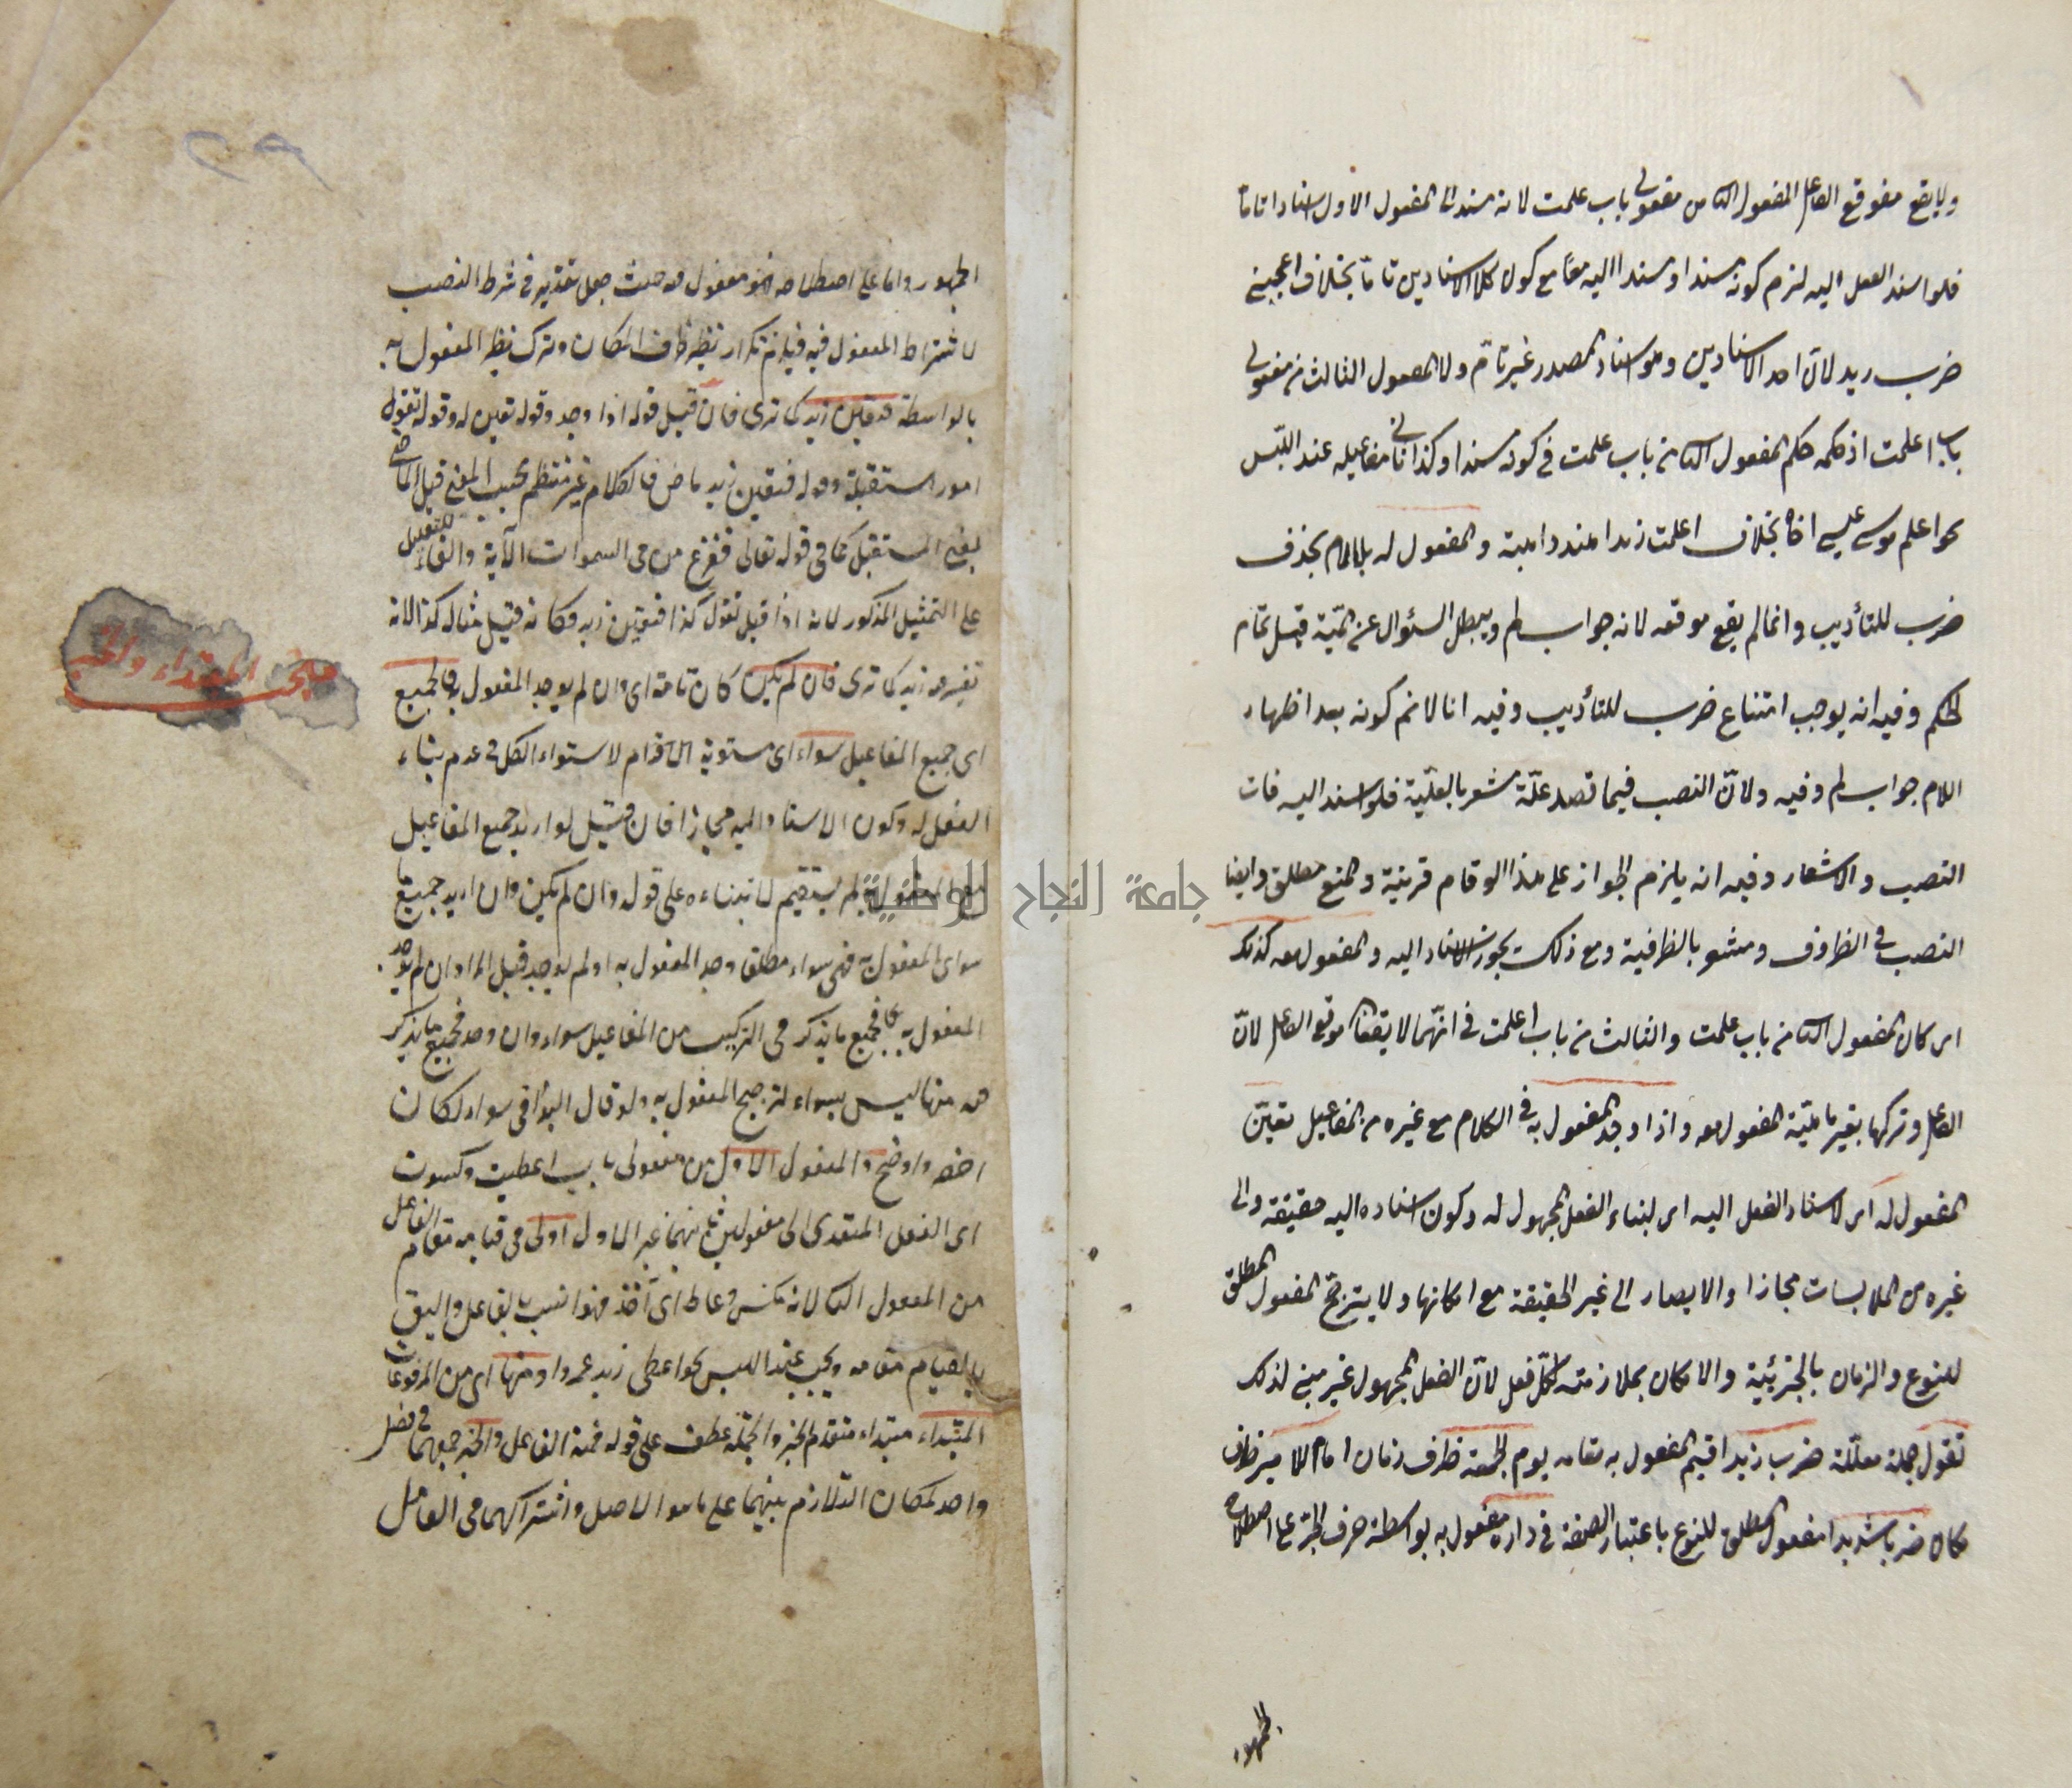 ولا يقع موقع الفاعل المفعول الثا من مفعولي باب علمت لانه مسند الى المفعول الاول اسنادا تاما
فلو اسند الفعل اليه لزم كونه مسندا ومسندا اليه معا مع كون كلا الاسنادين تاما بخلاف اعجبني
ضرب زيد لان احد الاسنادين وهو اسناد المصدر غير تام ولا المفعول الثالث من مفعولي
باب اعلمت اذ حكمه حكم المفعول الثا من باب علمت في كونه مسندا وكذا ثاني مفاعيله عند اللبس
نحو اعلم موسى عيسى اخاه بخلاف اعلمت زيدا هندا دابة والمفعول له بلا لام بحذف
ضرب للتأديب وانما لم يقع موقعه لانه جواب لم ويبطل السئوال عن لمية قبل تمام
الحكم وفيه انه يوجب امتناع ضرب للتأديب وفيه انا لا نم كونه بعد اظهار
اللام جواب لم وفيه ولان النصب فيما قصد علة مشعر بالعلية فلو اسند اليه فات
النصب والاشعار وفيه انه يلزم الجواز على هذا لو قام قرينة والمنع مطلق وايضا
النصب في الظروف ومشعر بالظرفية ومع ذلك يجوز الاسناد اليه والمفعول معه كذلك
اى كان المفعول الثا من باب علمت والثالث من باب اعلمت في انهما لا يقعان موقع الفاعل لان
الفاعل وتركها يغير ماهية المفعول معه واذا وجد المفعول به في الكلام مع غيره من المفاعيل تعين
المفعول له اى لاسناد الفعل اليه اى لبناء الفعل المجهول له وكون اسناده اليه حقيقة والى
غيره من الملابسات مجازا والا يصار الى غير الحقيقة مع امكانها ولا يترجح المفعول المطلق
للنوع والزمان بالجزئية والامكان بملازمته لكل فعل لان الفعل المجهول غير مبني لذلك
تقول جملة معللة ضرب زيد اقيم المفعول به مقامه يوم الجمعة ظرف زمان امام الامير ظرف
مكان ضربا شديدا مفعول مطلق للنوع باعتبار الصفة في داره مفعول به بواسطة حرف الجر على اصطلاح
الجمهور
الجمهور واما على اصطلاحه فهو مفعول فيه حيث جعل تقدير في شرط النصب
لا شتراط المفعول فيه فيلزم تكرار نظير ظرف المكان وترك نظير المفعول به
بالواسطة فتعين زيد كما ترى فان قيل قوله اذا وجد وقوله تعين له وقوله تقول
امور مستقبلة وقوله فتعين زيد ماض فالكلام غير منتظم بحسب المعنى قيل الماضي
بمعنى المستقبل كما في قوله تعالى ففزع من في السموات الآية والفاء للتفصيل
على التمثيل المذكور لانه اذا قيل تقول كذا فتعين زيد فكانه قيل مثاله كذا لانه
تعين فيه زيد كما ترى فان لم يكن كان تامة اى وان لم يوجد المفعول به فالجميع
اى جميع المفاعيل سواء اى مستوية الاقدام لاستواء الكل في عدم بناء
الفعل له وكون الاسناد اليه مجازا فان قيل لو اريد جميع المفاعيل
مع المفعول به لم يستقيم لابتناءه على قوله وان لم يكن وان اريد جميع ما
سوى المفعول به فهى سواء مطلقا وجد المفعول به اولم يوجد قيل المراد ان لم يوجد
المفعول به فجميع ما يذكر في التركيب من المفاعيل سواء وان وجد فجميع ما يذكر
فيه منها ليس بسواء لترجيح المفعول به ولو قال البواقي سواء لكان
اخصر واوضح والمفعول الاول من مفعولى باب اعطيت وكسوت
اى الفعل المتعدى الى مفعولين ثانيهما غير الاول اولى في قيامه مقام الفاعل
من المفعول الثا لانه مكتس وعاط اى آخذ فهو انسب بالفاعل واليق
بالقيام مقامه ويجب عند اللبس نحو اعطى زيد عمروا ومنها اى من المرفوعات
المبتداء مبتداء متقدم الخبر والجملة عطف على قوله فمنه الفاعل والخبر جمعهما في فصل
واحد لمكان التلازم بينهما على ما هو الاصل واشتراكهما في العامل
مبحث المبتداء والخبر
٢٩
جامعة النجاح الوطنية